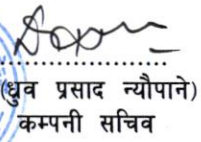 (ध्रुव प्रसाद न्यौपाने)
कम्पनी सचिव